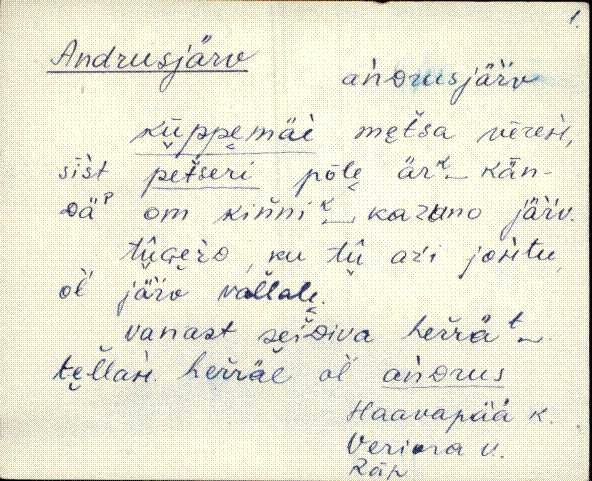 1.
Andrusjärv
ańdrusjäŕv
küppemäe metsa vēreh,
siist petseri pōle ärᴷ kän-
däᴾ om kinniᴷ kazuno järv.
ku tū aŕi
öĺ järv vallale.
vanast seiDiva herräᵗ
tellaḱ. herräl öĺ ańdrus
Haavapää k.
Veriora v.
Räp